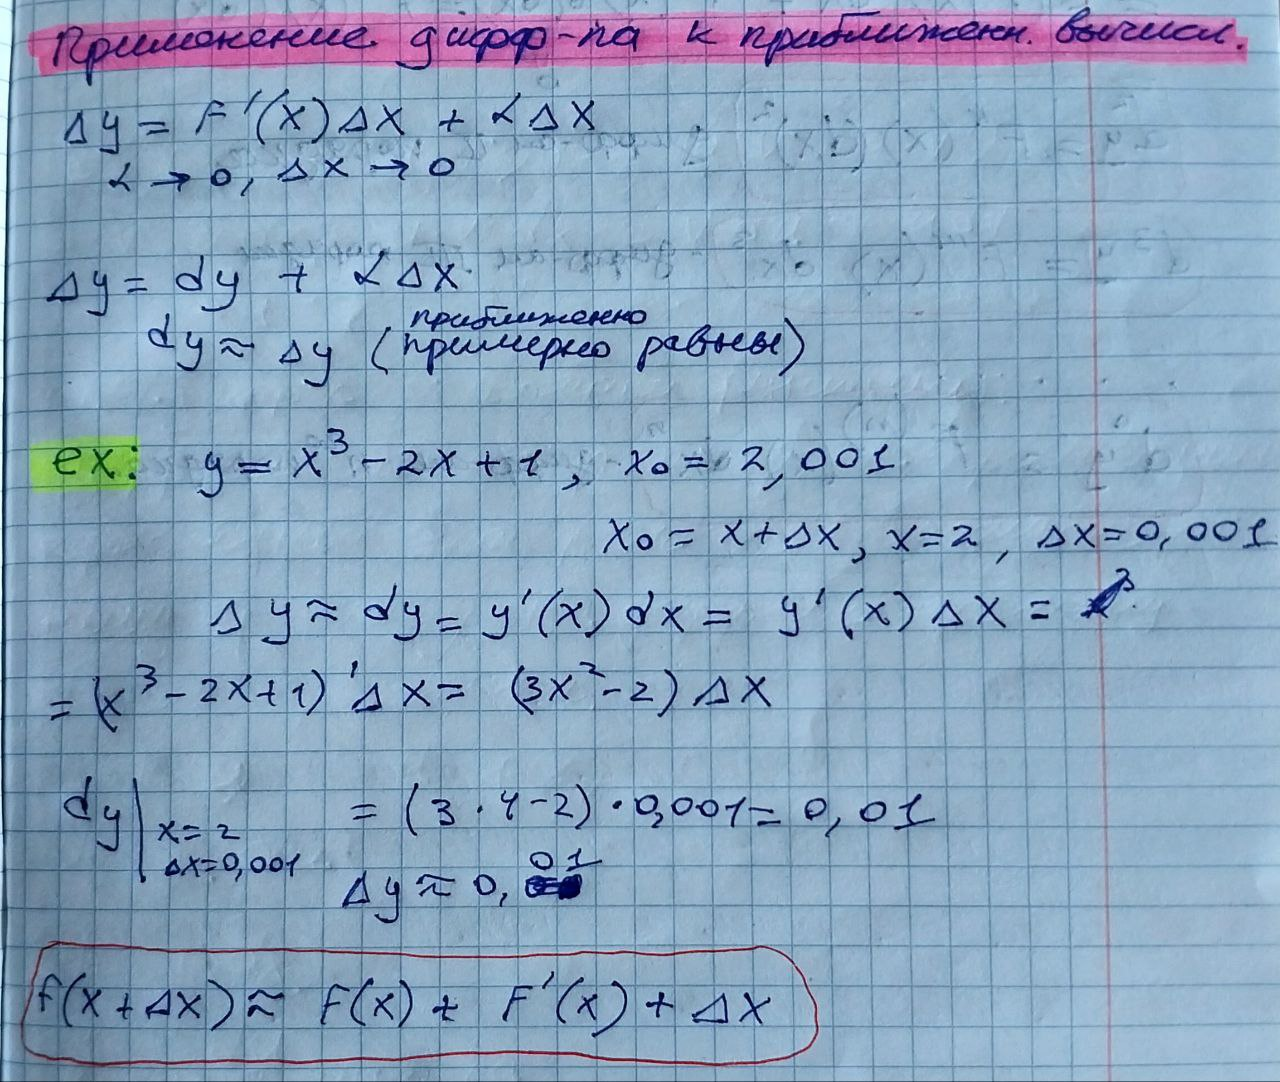 Применение дифф-ла к приближенн. вычисл.
Δy = F'(x)Δx + αΔx
α → 0, Δx → 0
Δy = dy + αΔx
приближенно
dy ≈ Δy (примерно равны)
ex: y = x³ - 2x + 1, x₀ = 2,001
x₀ = x + Δx, x = 2, Δx = 0,001
Δy ≈ dy = y'(x) dx = y'(x) Δx =
= (x³ - 2x + 1)' Δx = (3x² - 2) Δx
dy| x=2 Δx=0,001 = (3 · 4 - 2) · 0,001 = 0,01
Δy ≈ 0,01
f(x + Δx) ≈ F(x) + F'(x) + Δx